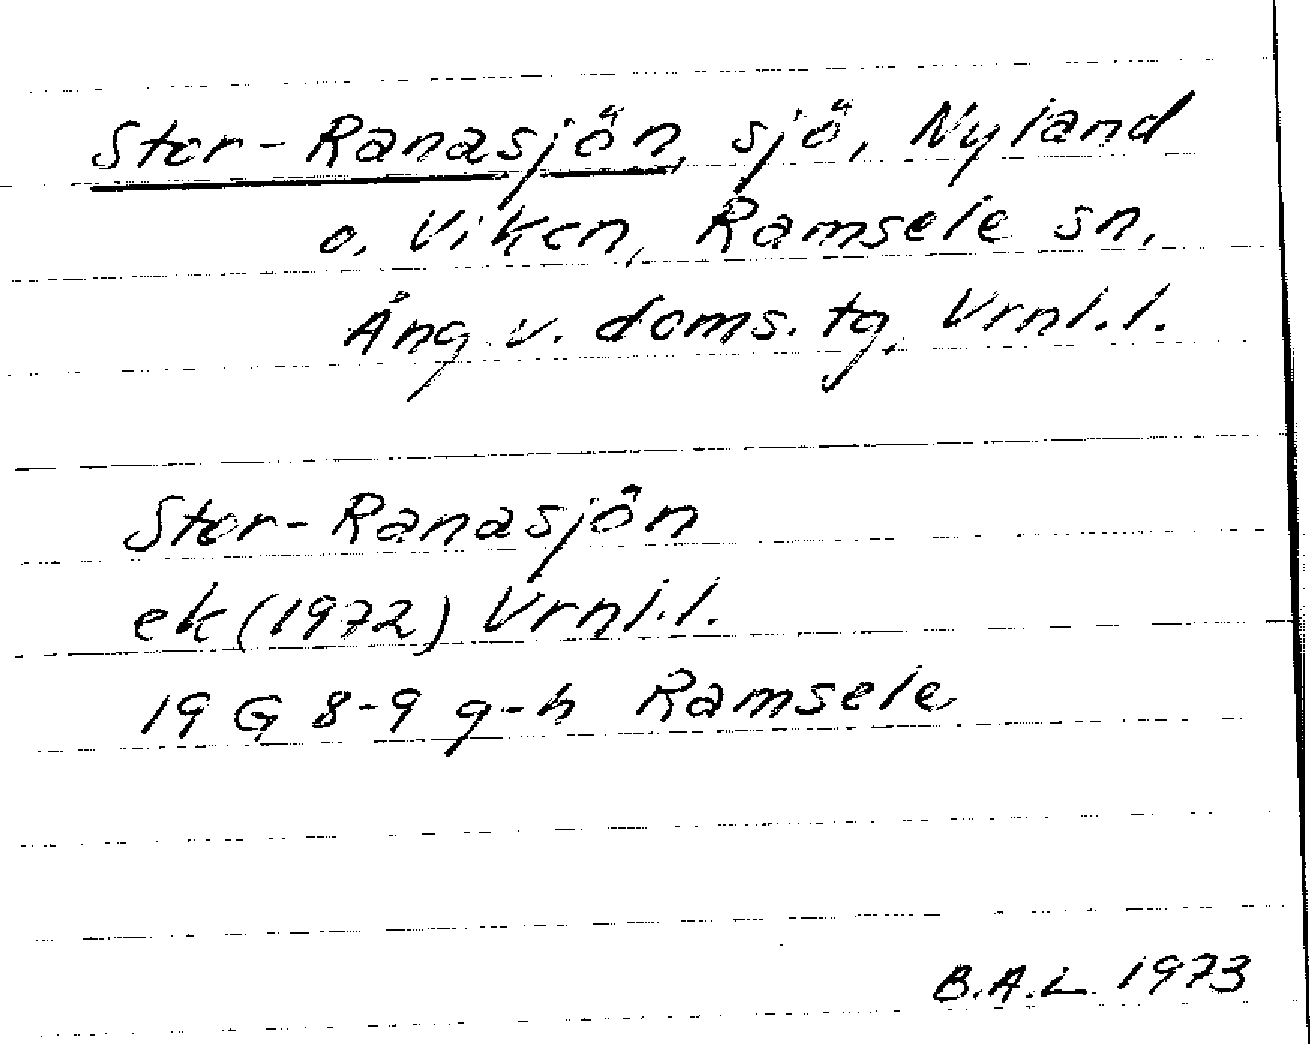 Stor-Ranasjön, sjö, Nyland
o. Viken, Ramsele sn,
Ång. v. doms. tg, Vrnl. l.
Stor-Ranasjön
ek (1972) Vrnl. l.
19 G 8-9 g-h Ramsele
B.A.L 1973